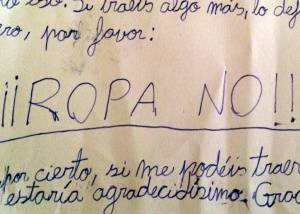 eso. Si traéis algo más, lo de
ero, por favor:
¡¡ROPA NO!!
por cierto, si me podéis traer
estaría agradecidísimo. Grac